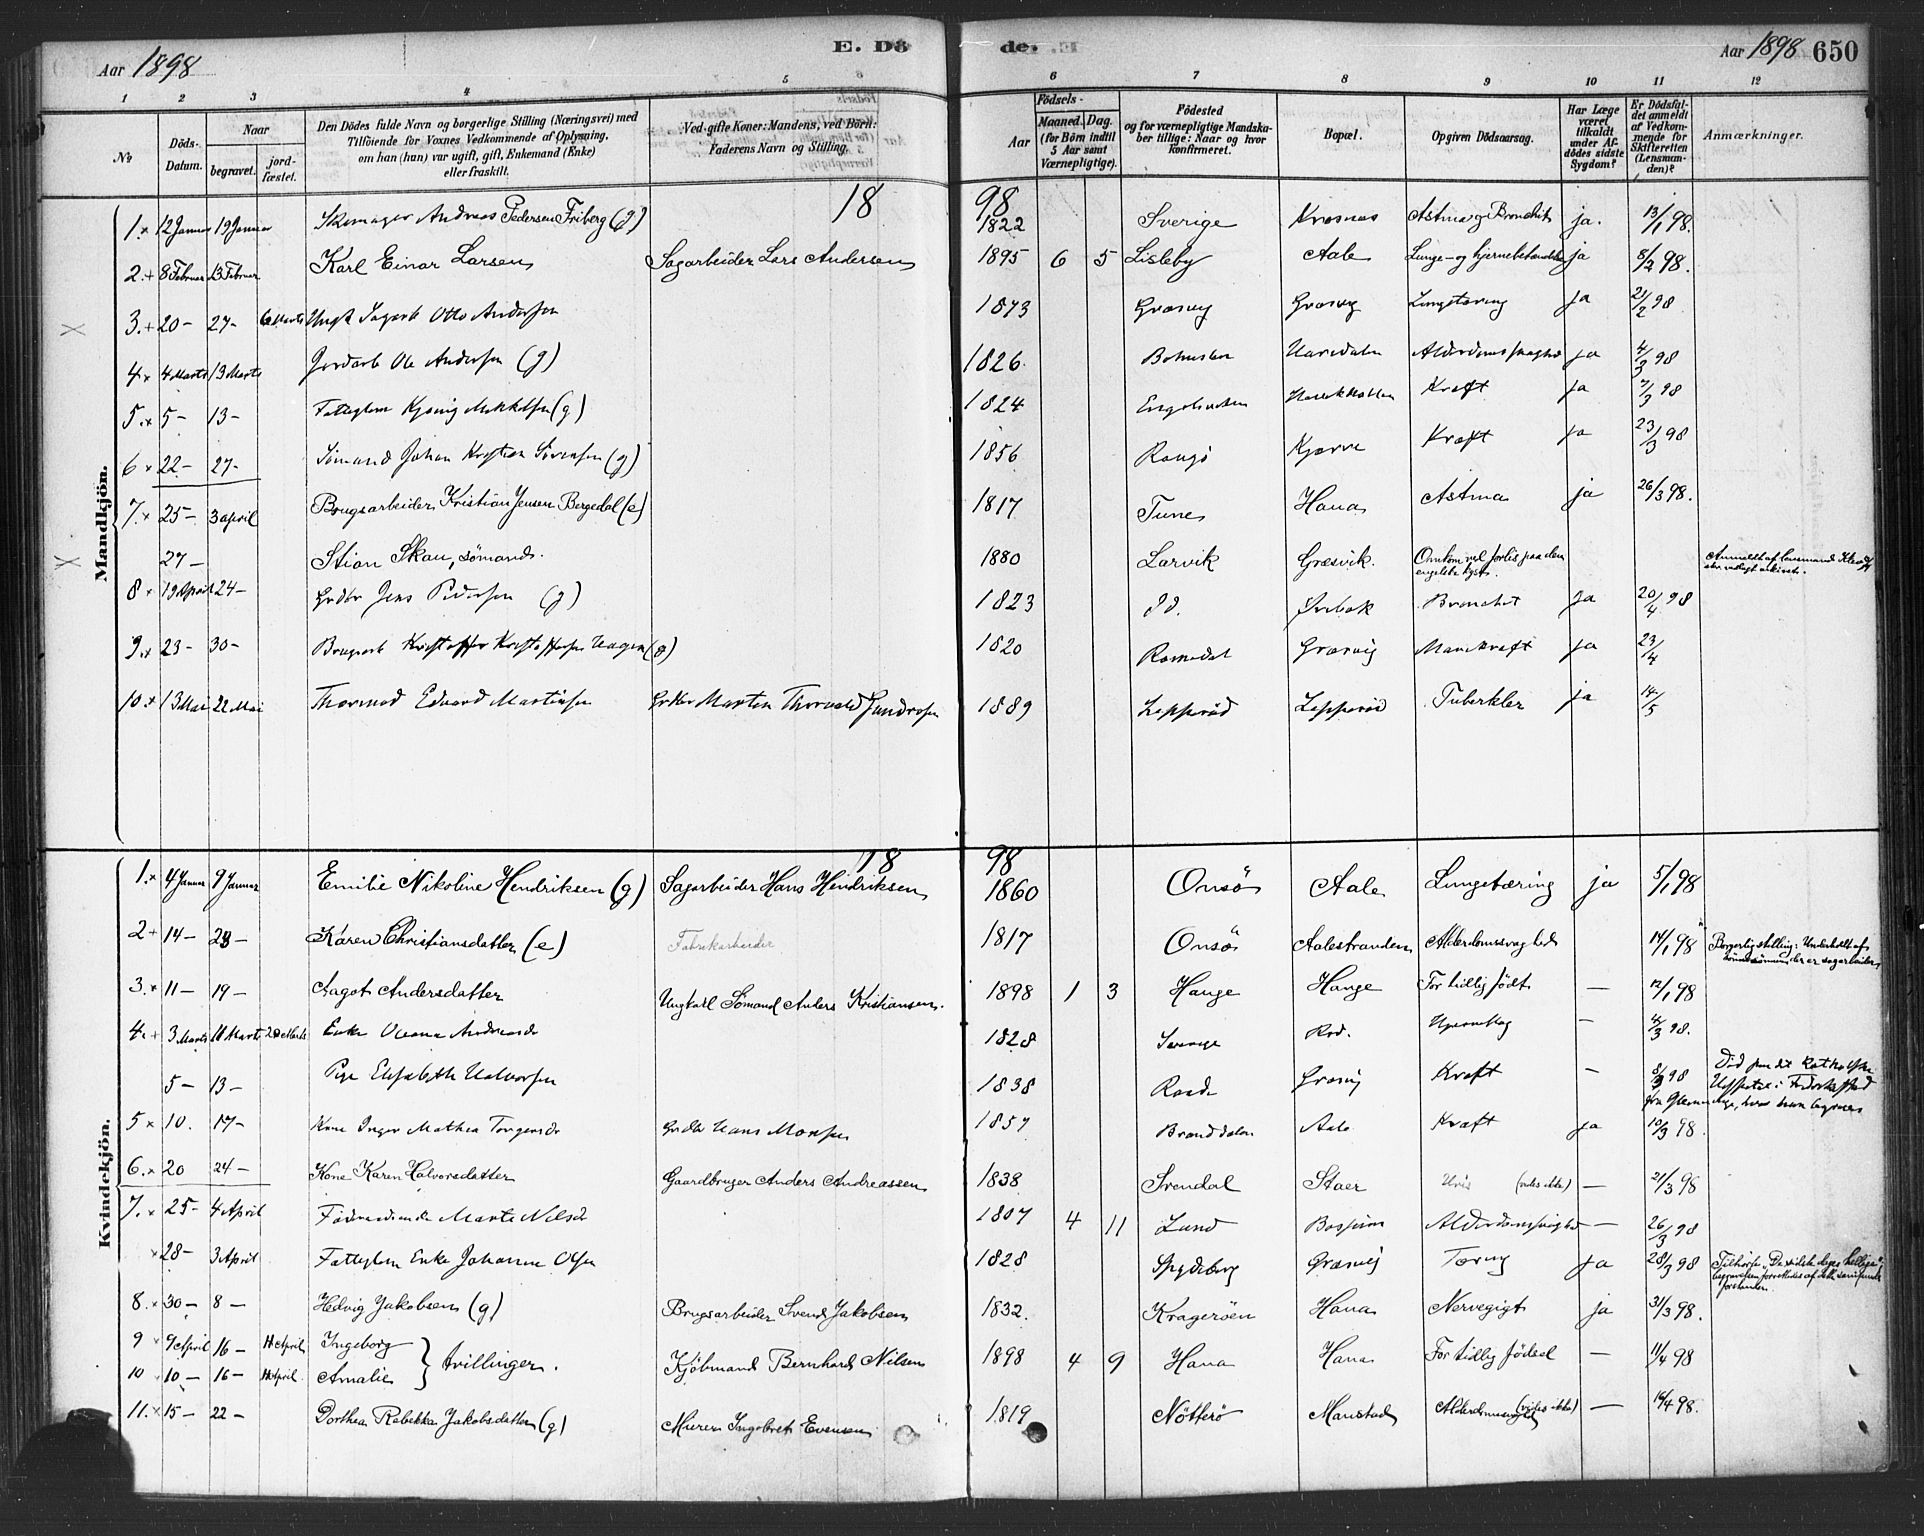 Aar 1898
E. Dö
de. E
Aar 1898 650
1 2 3 4 5 6 7 8 9 10 11 12
No
Döds-Datum.
Naar
begravet.
jord-fæstet.
Den Dödes fulde Navn og borgerlige Stilling (Næringsvei) med
Tilföiende for Voxnes Vedkommende af Oplysning,
om han (hun) var ugift, gift, Enkemand (Enke)
eller fraskilt.
Ved gifte Koner: Mandens, ved Börn:
Faderens Navn og Stilling.
Födsels-
Aar
Maaned. Dag.
(for Börn indtil
5 Aar samt
Værnepligtige).
Födested
og for værnepligtige Mandska-
ber tillige: Naar og hvor
konfirmeret.
Bopæl.
Opgiven Dödsaarsag.
Har Læge
været
tilkaldt
under Af-
dödes sidste
Sygdom?
Er Dödsfal-
det anmeldt
af Vedkom-
mende for
Skifteretten
(Lensman-
den)?
Anmærkninger.
Mandkjön.
18 98
1. 12 Januar 19 Januar Skomager Andreas Pedersen Friberg (g) 1822 Sverige Kræsnes Astma og Bronchit ja. 13/1 98.
2. 8 Februar 13 Februar Karl Einar Larsen Sagarbeider Lars Andersen 1895 6 5 Lisleby Aale Lunge- og hjernebetændelse ja 8/2 98.
3. 20 - 27 - 6 Marts Ungk Sagarb Otto Andersen 1873 Græsvig Græsvig Lungetæring ja 21/2 98
4 4 Marts 13 Marts Jordarb Ole Andersen (g) 1826 Bohuslen Alderdomssvaghed ja 4/3 98
5. 5 - 13 - Fattiglem Mikkelsen (g) 1824 Kræft ja 7/3 98
6 22 - 27 - Sömand Johan Kristian Sörensen (g) 1856 Kræft ja 23/3 98
7. 25 - 3 april Brugsarbeider Kristian Jensen Bergedal (e) 1817 Tune Hana Astma ja 26/3 98.
27 - Stian Skau, sömand. 1880 Larvik Græsvik. Omkom ved forlis paa den
engelske kyst. Anmeldt af lensmand
8 19 April 24 - Grdbr Jens Pedersen (g) 1823 Id. Örebæk Bronchit ja 20/4 98
9. 23 - 30 - Brugsarb Kristoffer Kristoffersen Haugen (g) 1820 Romedal Græsvig Mavekræft ja 23/4
10. 13 Mai 22 Mai Thormod Edvard Martinsen Grdbr Martin Thorvald Gundersen 1889 Lepperöd Lepperöd Tuberkler ja 14/5
Kvindekjön.
18 98
1. 4 Januar 9 Januar Emilie Nikoline Hendriksen (g) Sagarbeider Hans Hendriksen 1860 Onsö Aale Lungetæring ja 5/1 98
2 14 - 23 - Karen Christiansdatter (e) Fabrikarbeider 1817 Onsö Aalestranden Alderdomssvaghed 14/1 98 Borgerlig stilling: Underholdt af
sönnen der er sagarbeider
3. 11 - 19 - Aagot Andersdatter Ungkarl Sömand Anders Kristiansen. 1898 1 3 Hauge Hauge For tidlig födt — 12/1 98
4. 3 Marts 11 Marts 20 Marts Enke Oleana Andreasdr 1828 Sverige Rod. — 4/3 98.
5 - 13 - Pige Elisabeth Halvorsen 1838 Raade Græsvig Kræft — 8/3 98 Död paa det Katholske
Hospital i Fredrikstad
5 10. 17 - Kone Inger Mathea Torgersdr Grdbr Hans Monsen 1857 Branddalen Aale Kræft ja 10/3 98.
6. 20 24 - Kone Karen Halvorsdatter Gaardbruger Anders Andreassen 1838 Svendal Staer Uvis (vides ikke) — 21/3 98
7. 25 - 4 April Föderaadsenke Marte Nilsdr 1807 4 11 Lund Alderdomssvaghed — 26/3 98
28 - 3 April Fattiglem Enke Johanne Olsen 1828 Spydeberg Græsvig Tæring ja 28/3 98 Tilhörte "De sidste dages hellige",
begravelsen forrettedes af dette samfunds
forstander.
8. 30 - 8 - Hedvig Jakobsen (g) Brugsarbeider Svend Jakobsen 1832. Kragerøen Hana Nervegigt ja 31/3 98.
9 9 April 16 - 11 April Ingeborg } tvillinger. Kjöbmand Bernhard Nilsen 1898 4 9 Hana Hana For tidlig födsel — 11/4 98
10 10 - 16 - 11 April. Amalie
11. 15 - 22 - Dorthea Rebekka Jakobsdatter (g) Murer Ingebret Evensen 1819 Nötterö Manstad Alderdomssvaghed (vides ikke) — 16/4 98.